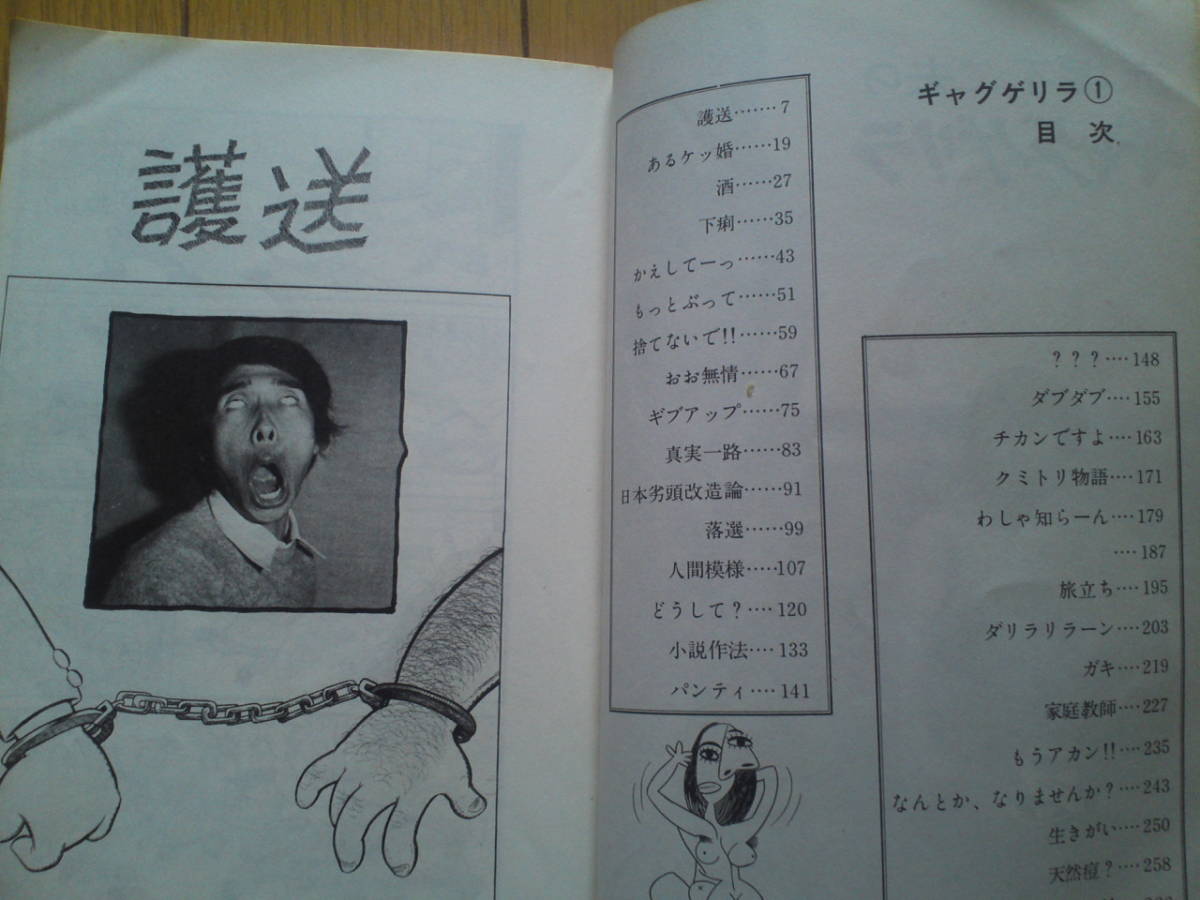 護送
ギャグゲリラ①
目次
護送……7
あるケッ婚……19
酒……27
下痢……35
かえしてーっ……43
もっとぶって……51
捨てないで!!……59
おお無情……67
ギブアップ……75
真実一路……83
日本劣頭改造論……91
落選……99
人間模様……107
どうして?……120
小説作法……133
パンティ……141
???……148
ダブダブ……155
チカンですよ……163
クミトリ物語……171
わしゃ知らーん……179
……187
旅立ち……195
ダリラリラーン……203
ガキ……219
家庭教師……227
もうアカン!!……235
なんとか、なりませんか?……243
生きがい……250
天然痘?……258